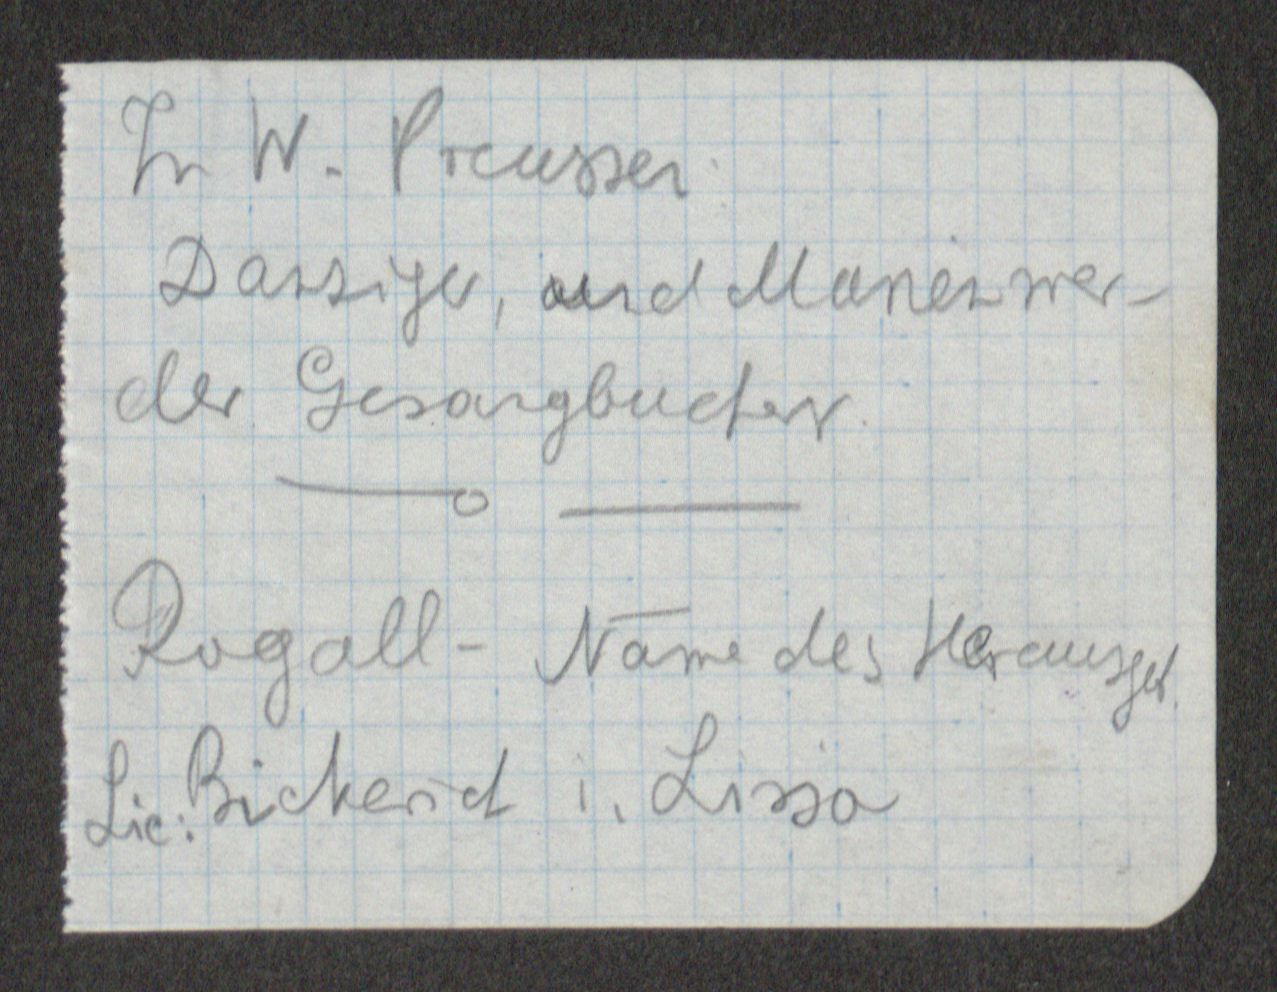 In W. Preussen.
Danziger, und Marienwer-
der Gesangbucher.
Rogall - Name des Herausgeb.
Lic: Bickerich i. Lissa